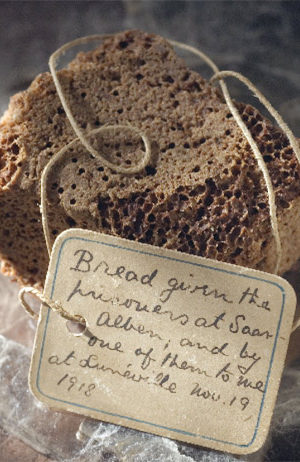 Bread given the
prisoners at Saar-
Alben, and by
one of them to me
at Lunéville Nov. 19,
1918